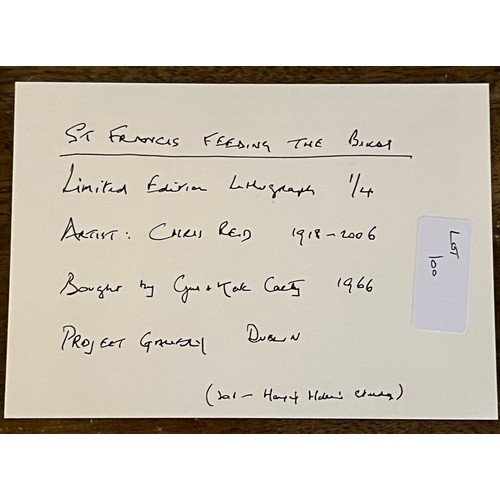 ST FRANCIS FEEDING THE BIRDS
Limited Edition Lithograph 1/4
ARTIST: CHRIS REID 1918-2006
Bought by Gus + Kak 1966
PROJECT GALLERY DUBLIN
LOT
100